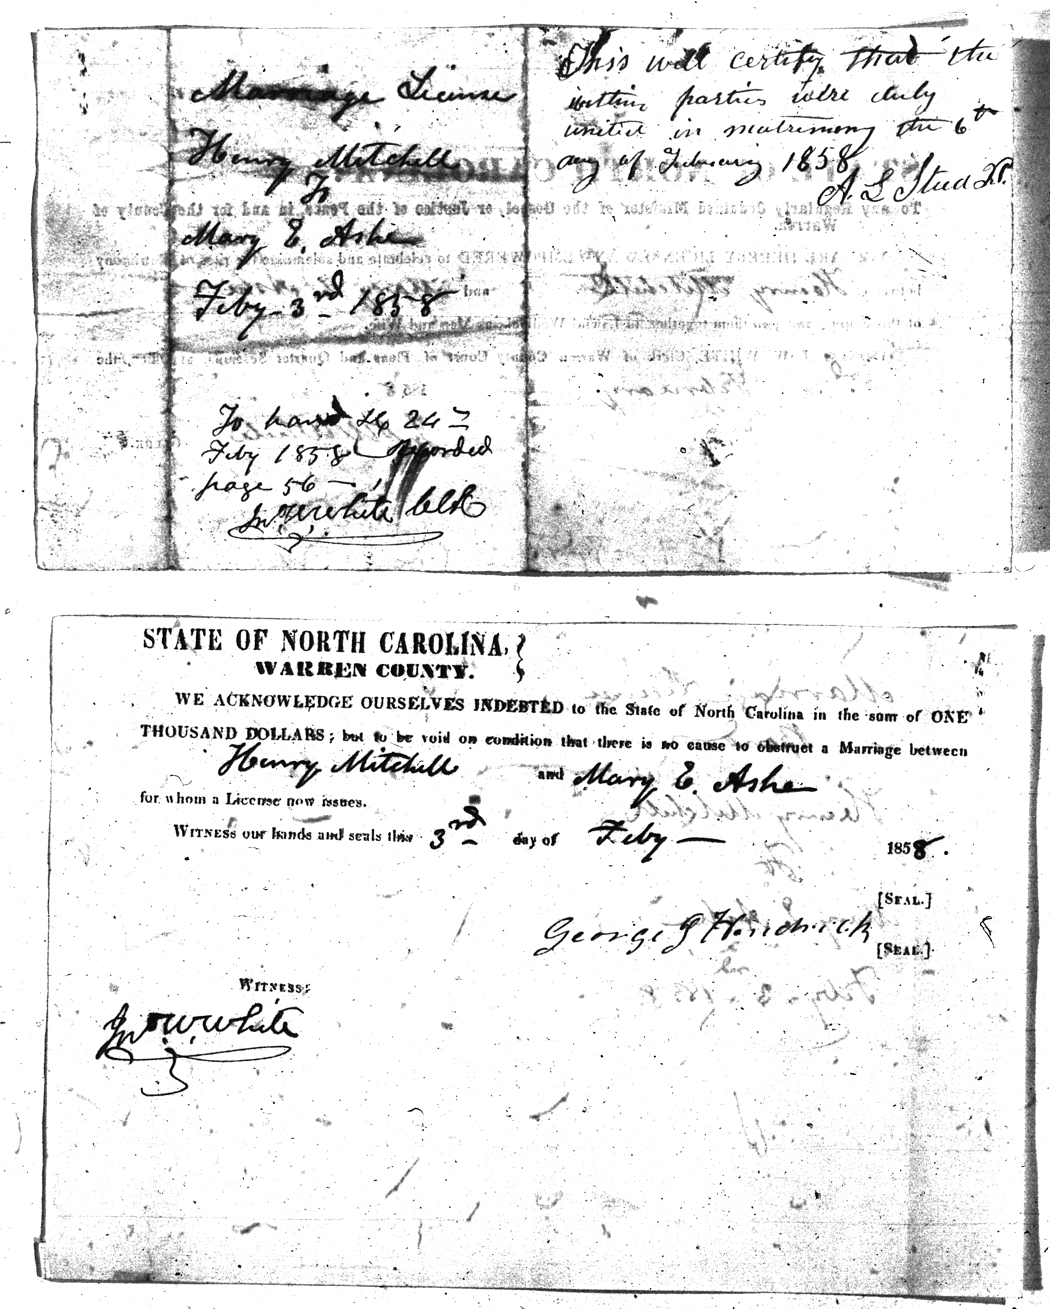 Marriage License
Henry Mitchell
To
Mary E. Ashe
Feby 3rd 1858
To hand 24
Feby 1858 Recorded
page 56
Jno. W. White Clk
This will certify that the
within parties were duly
united in matrimony the 6th
day of February 1858
A. L. Steed J.P.
To any Regularly Ordained Minister of the Gospel, or Justice of the Peace, in and for the County of
Warren.
STATE OF NORTH CAROLINA,
WARREN COUNTY.
WE ACKNOWLEDGE OURSELVES INDEBTED to the State of North Carolina in the sum of ONE
THOUSAND DOLLARS; but to be void on condition that there is no cause to obstruct a Marriage between
Henry Mitchell and Mary E. Ashe
for whom a License now issues.
WITNESS our hands and seals this 3rd day of Feby 1858.
[SEAL.]
George J Hendrick
[SEAL.]
WITNESS:
Jno. W. White